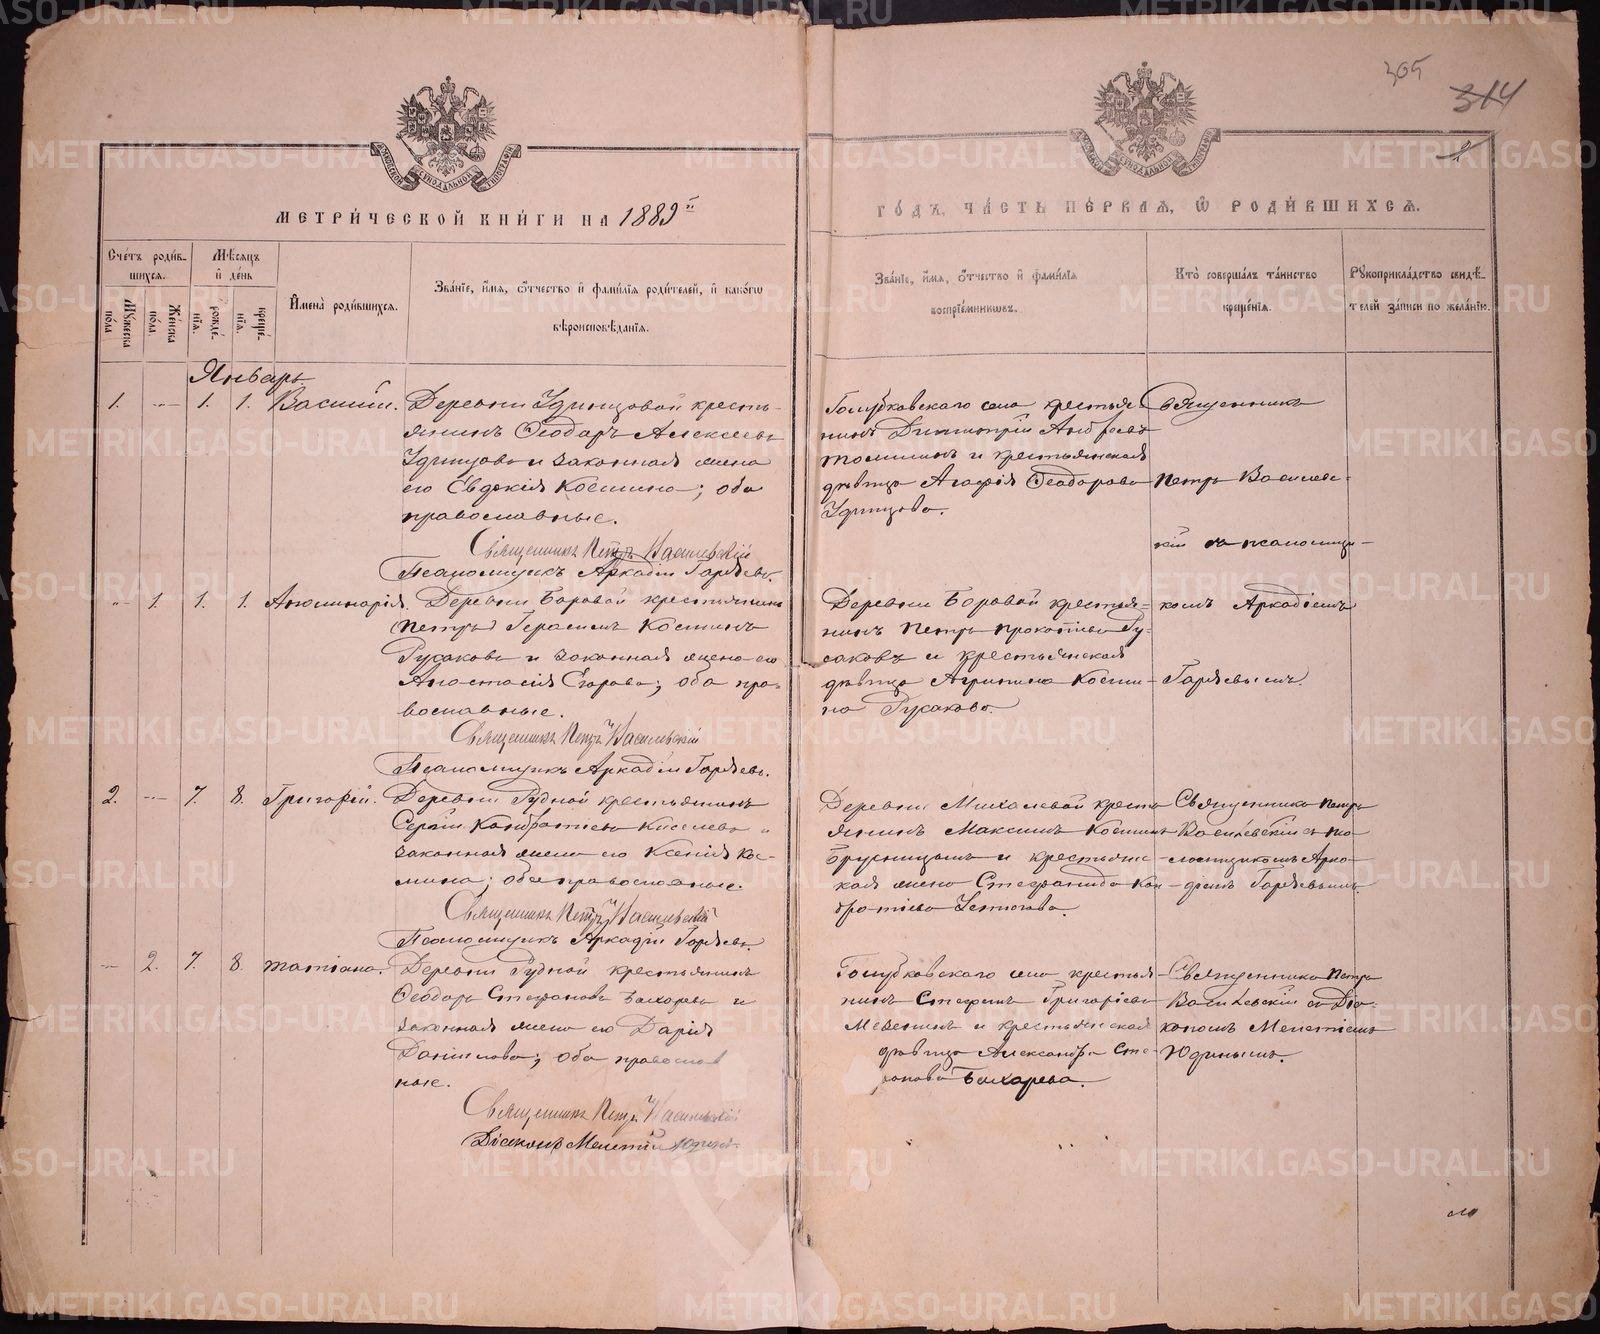 305
314
МЕТРИ́ЧЕСКОЙ КНИ́ГИ НА 1889й
ГО́ДЪ, ЧА́СТЬ ПЕ́РВАЯ, Ѽ РОДИ́ВШИХСЯ.
Сче́тъ роди́в-
шихся.
Му́жеска по́ла
Же́нска по́ла
Мѣ́сяцъ
и де́нь
рожде́-
нїя.
креще́-
нїя.
И҆мена̀ роди́вшихся.
Зва́нїе, и҆́мя, ѻ҆́тчество и҆ фамилїя роди́телей, и҆ како́гѡ
вѣроисповѣ́данїя.
Зва́нїе, и҆́мя, ѻ҆́тчество и҆ фами́лїя
воспрїе́мниковъ.
Кто̀ соверша́лъ та́инство
креще́нїя.
Рꙋкоприкла́дство свидѣ́-
телей за́писи по жела́нїю.
Январь
1. — 1. 1. Василій. Деревни Удинцовой кресть-
янинъ Ѳеодоръ Алексѣевъ
Удинцовъ и законная жена
его Евдокія Космина; оба
православные.
Священникъ Петръ Василевскій
Псаломщикъ Аркадій Гордѣевъ.
Голубковскаго села крестья-
нинъ Димитрій Андреевъ
Томилинъ и крестьянская
дѣвица Агафія Ѳеодорова
Удинцова.
Священникъ
Петръ Василев-
скій съ псаломщи-
комъ Аркадіемъ
Гордѣевымъ.
— 1. 1. 1. Аполинарія. Деревни Боровой крестьянинъ
(Петръ) Герасимъ Косминъ
Русаковъ и законная жена его
Анастасія Егорова; оба пра-
вославные.
Священникъ Петръ Василевскій
Псаломщикъ Аркадій Гордѣевъ.
Деревни Боровой крестья-
нинъ Петръ Прокопіевъ Ру-
саковъ и крестьянская
дѣвица Агрипина Косми-
на Русакова.
2. — 7. 8. Григорій. Деревни Рудной крестьянинъ
Сергій Кондратіевъ Киселевъ и
законная жена его Ксенія Кос-
мина; оба православные.
Священникъ Петръ Василевскій
Псаломщикъ Аркадій Гордѣевъ.
Деревни Михалевой кресть-
янинъ Максимъ Косминъ
Брусницынъ и крестьянс-
кая жена Стефанида Кон-
дратіева Устюгова.
Священникъ Петръ
Василевскій съ пса-
ломщикомъ Арка-
діемъ Гордѣевымъ
— 2. 7. 8. Татіана. Деревни Рудной крестьянинъ
Ѳеодоръ Стефановъ Бахаревъ и
законная жена его Дарія
Данилова; оба православ
ные.
Священникъ Петръ Василевскій
Діаконъ Мелетій Юдинъ.
Голубковскаго села крестья-
нинъ Стефанъ Григоріевъ
и крестьянская
дѣвица Александра Сте-
фанова Бахарева.
Священникъ Петръ
Василевскій съ Діа-
кономъ Мелетіемъ
Юдинымъ.